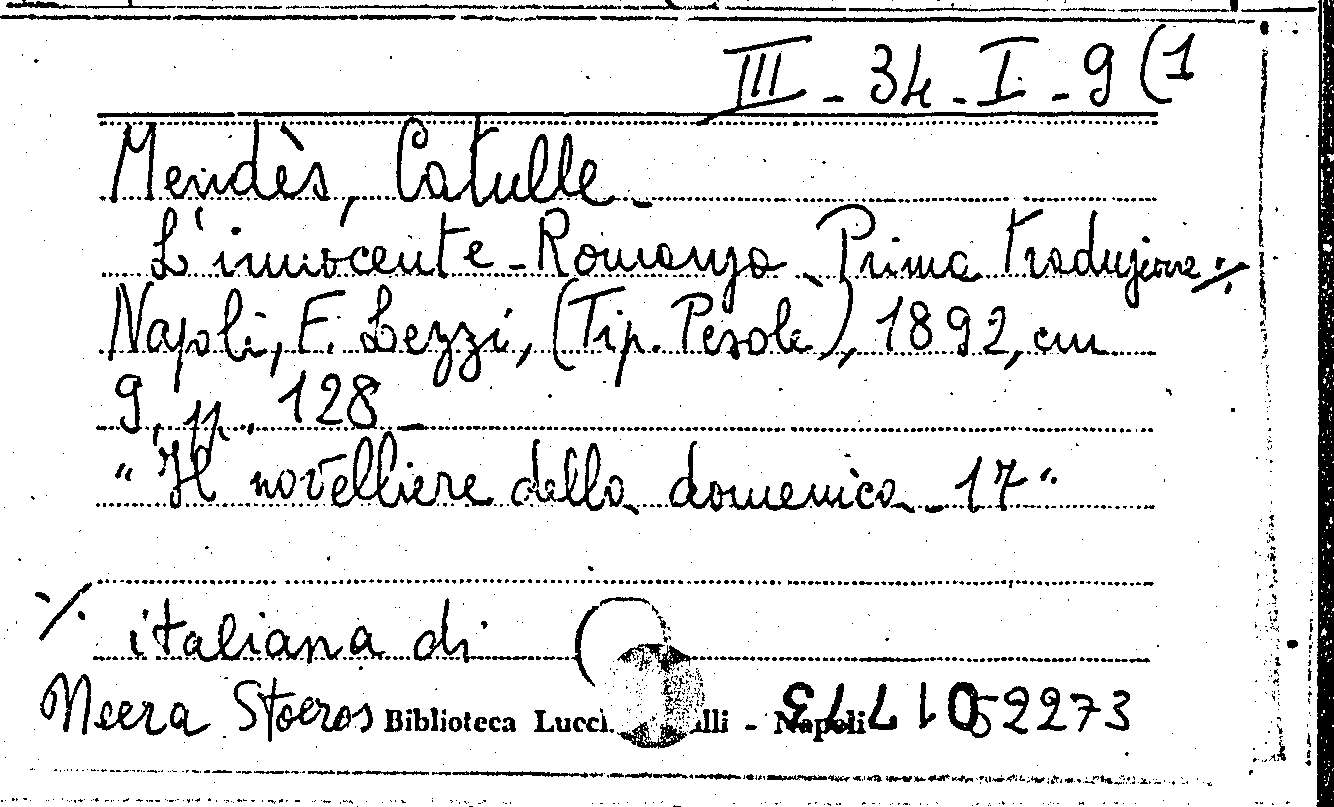 III - 34 - I - 9 (1
Mendès, Catulle -
L'innocente - Romanzo - Prima traduzione ·/.
Napoli, F. Lezzi, (Tip. Pesole), 1892, cm
9, pp. 128 -
" Il novelliere della domenica - 17 "
·/. italiana di
Neera Stoeros
Biblioteca Lucchi - Napoli
52273